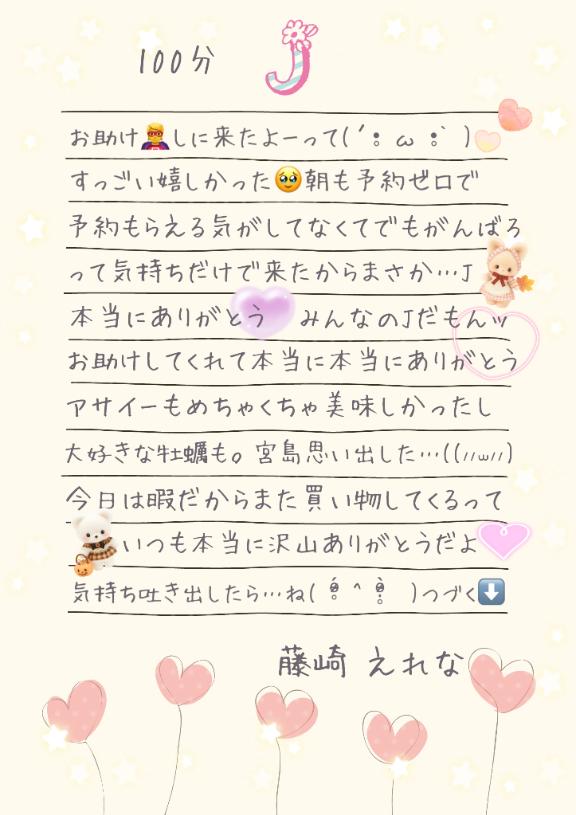 100分 J
お助け🦸しに来たよーって(´• ω •` )
すっごい嬉しかった🥹朝も予約ゼロで
予約もらえる気がしてなくてでもがんばろ
って気持ちだけで来たからまさか…J
本当にありがとう みんなのJだもんッ
お助けしてくれて本当に本当にありがとう
アサイーもめちゃくちゃ美味しかったし
大好きな牡蠣も。宮島思い出した…((//ω//)
今日は暇だからまた買い物してくるって
いつも本当に沢山ありがとうだよ
気持ち吐き出したら…ね( •̀ ^ •́ )つづく⬇️
藤崎 えれな